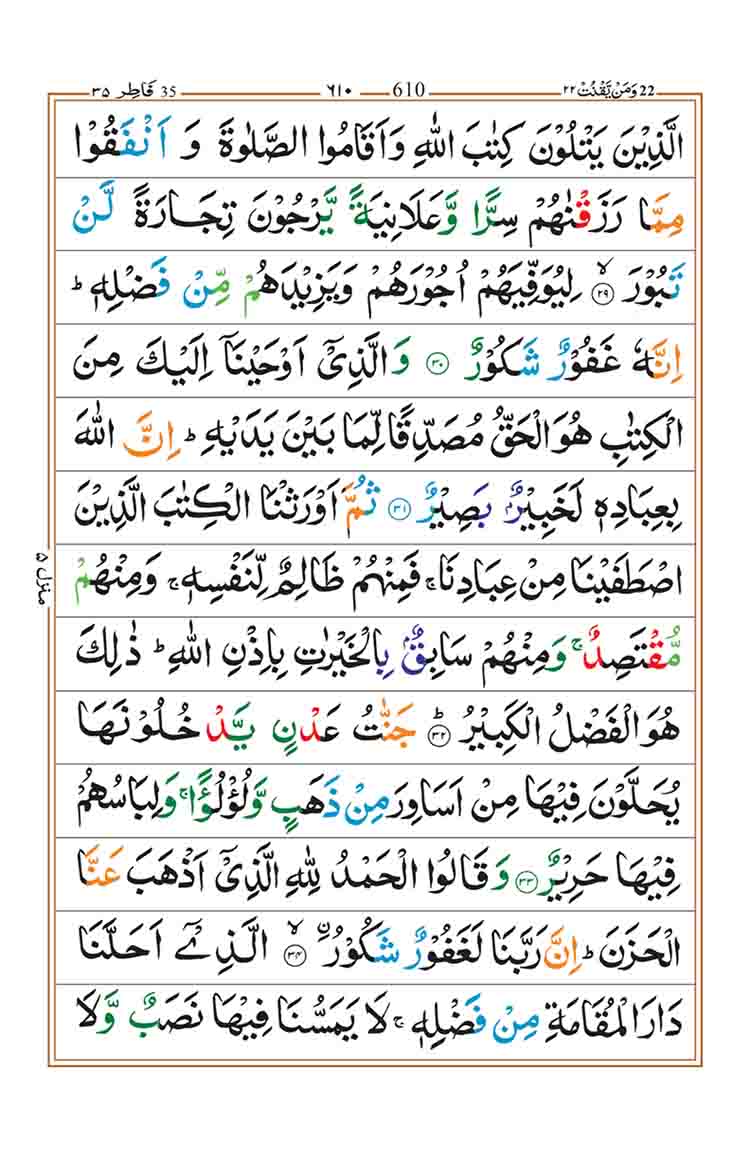 22 وَمَنْ يَّقْنُتْ ٢٢ 610 ٦١٠ 35 فَاطِر ٣٥
الَّذِيْنَ يَتْلُوْنَ كِتٰبَ اللّٰهِ وَاَقَامُوا الصَّلٰوةَ وَ اَنْفَقُوْا
مِمَّا رَزَقْنٰهُمْ سِرًّا وَّعَلَانِيَةً يَّرْجُوْنَ تِجَارَةً لَّنْ
تَبُوْرَ ۙ‏﴿۲۹﴾ لِيُوَفِّيَهُمْ اُجُوْرَهُمْ وَيَزِيْدَهُمْ مِّنْ فَضْلِهٖ ؕ
اِنَّهٗ غَفُوْرٌ شَكُوْرٌ ﴿۳۰﴾ وَالَّذِيْۤ اَوْحَيْنَاۤ اِلَيْكَ مِنَ
الْكِتٰبِ هُوَ الْحَقُّ مُصَدِّقًا لِّمَا بَيْنَ يَدَيْهِ ؕ اِنَّ اللّٰهَ
بِعِبَادِهٖ لَخَبِيْرٌۢ بَصِيْرٌ ﴿۳۱﴾ ثُمَّ اَوْرَثْنَا الْكِتٰبَ الَّذِيْنَ
اصْطَفَيْنَا مِنْ عِبَادِنَا ۚ فَمِنْهُمْ ظَالِمٌ لِّنَفْسِهٖ ۚ وَمِنْهُمْ
مُّقْتَصِدٌ ۚ وَمِنْهُمْ سَابِقٌۢ بِالْخَيْرٰتِ بِاِذْنِ اللّٰهِ ؕ ذٰلِكَ
هُوَ الْفَضْلُ الْكَبِيْرُ ؕ‏﴿۳۲﴾ جَنّٰتُ عَدْنٍ يَّدْخُلُوْنَهَا
يُحَلَّوْنَ فِيْهَا مِنْ اَسَاوِرَ مِنْ ذَهَبٍ وَّلُؤْلُؤًا ۚ وَلِبَاسُهُمْ
فِيْهَا حَرِيْرٌ ﴿۳۳﴾ وَقَالُوا الْحَمْدُ لِلّٰهِ الَّذِيْۤ اَذْهَبَ عَنَّا
الْحَزَنَ ؕ اِنَّ رَبَّنَا لَغَفُوْرٌ شَكُوْرُ ۙ‏﴿۳۴﴾ ۨالَّذِيْۤ اَحَلَّنَا
دَارَ الْمُقَامَةِ مِنْ فَضْلِهٖ ۚ لَا يَمَسُّنَا فِيْهَا نَصَبٌ وَّلَا
منزل ٥